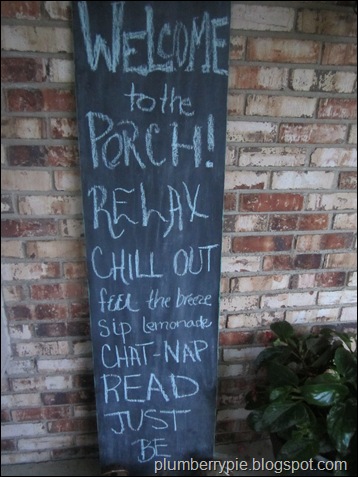 WELCOME
to the
PORCH!
RELAX
CHILL OUT
feel the breeze
Sip lemonade
CHAT-NAP
READ
JUST
BE
plumberrypie.blogspot.com